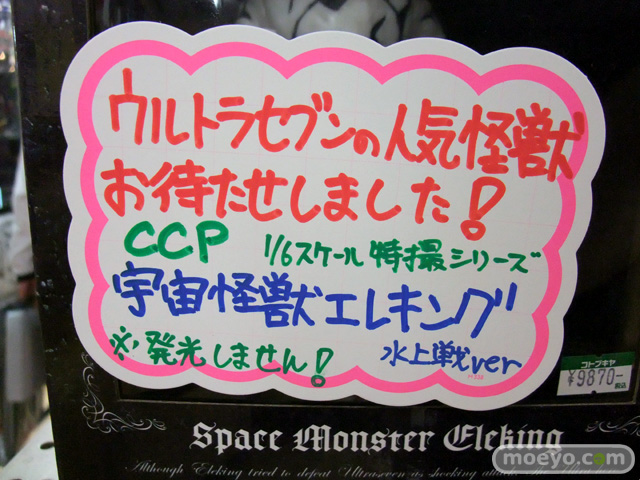 ウルトラセブンの人気怪獣
お待たせしました!
CCP 1/6スケール特撮シリーズ
宇宙怪獣エレキング
※発光しません! 水上戦ver
コトブキヤ
¥9870-
税込
Space Monster Eleking
Although Eleking tried to defeat Ultraseven
moeyo.com